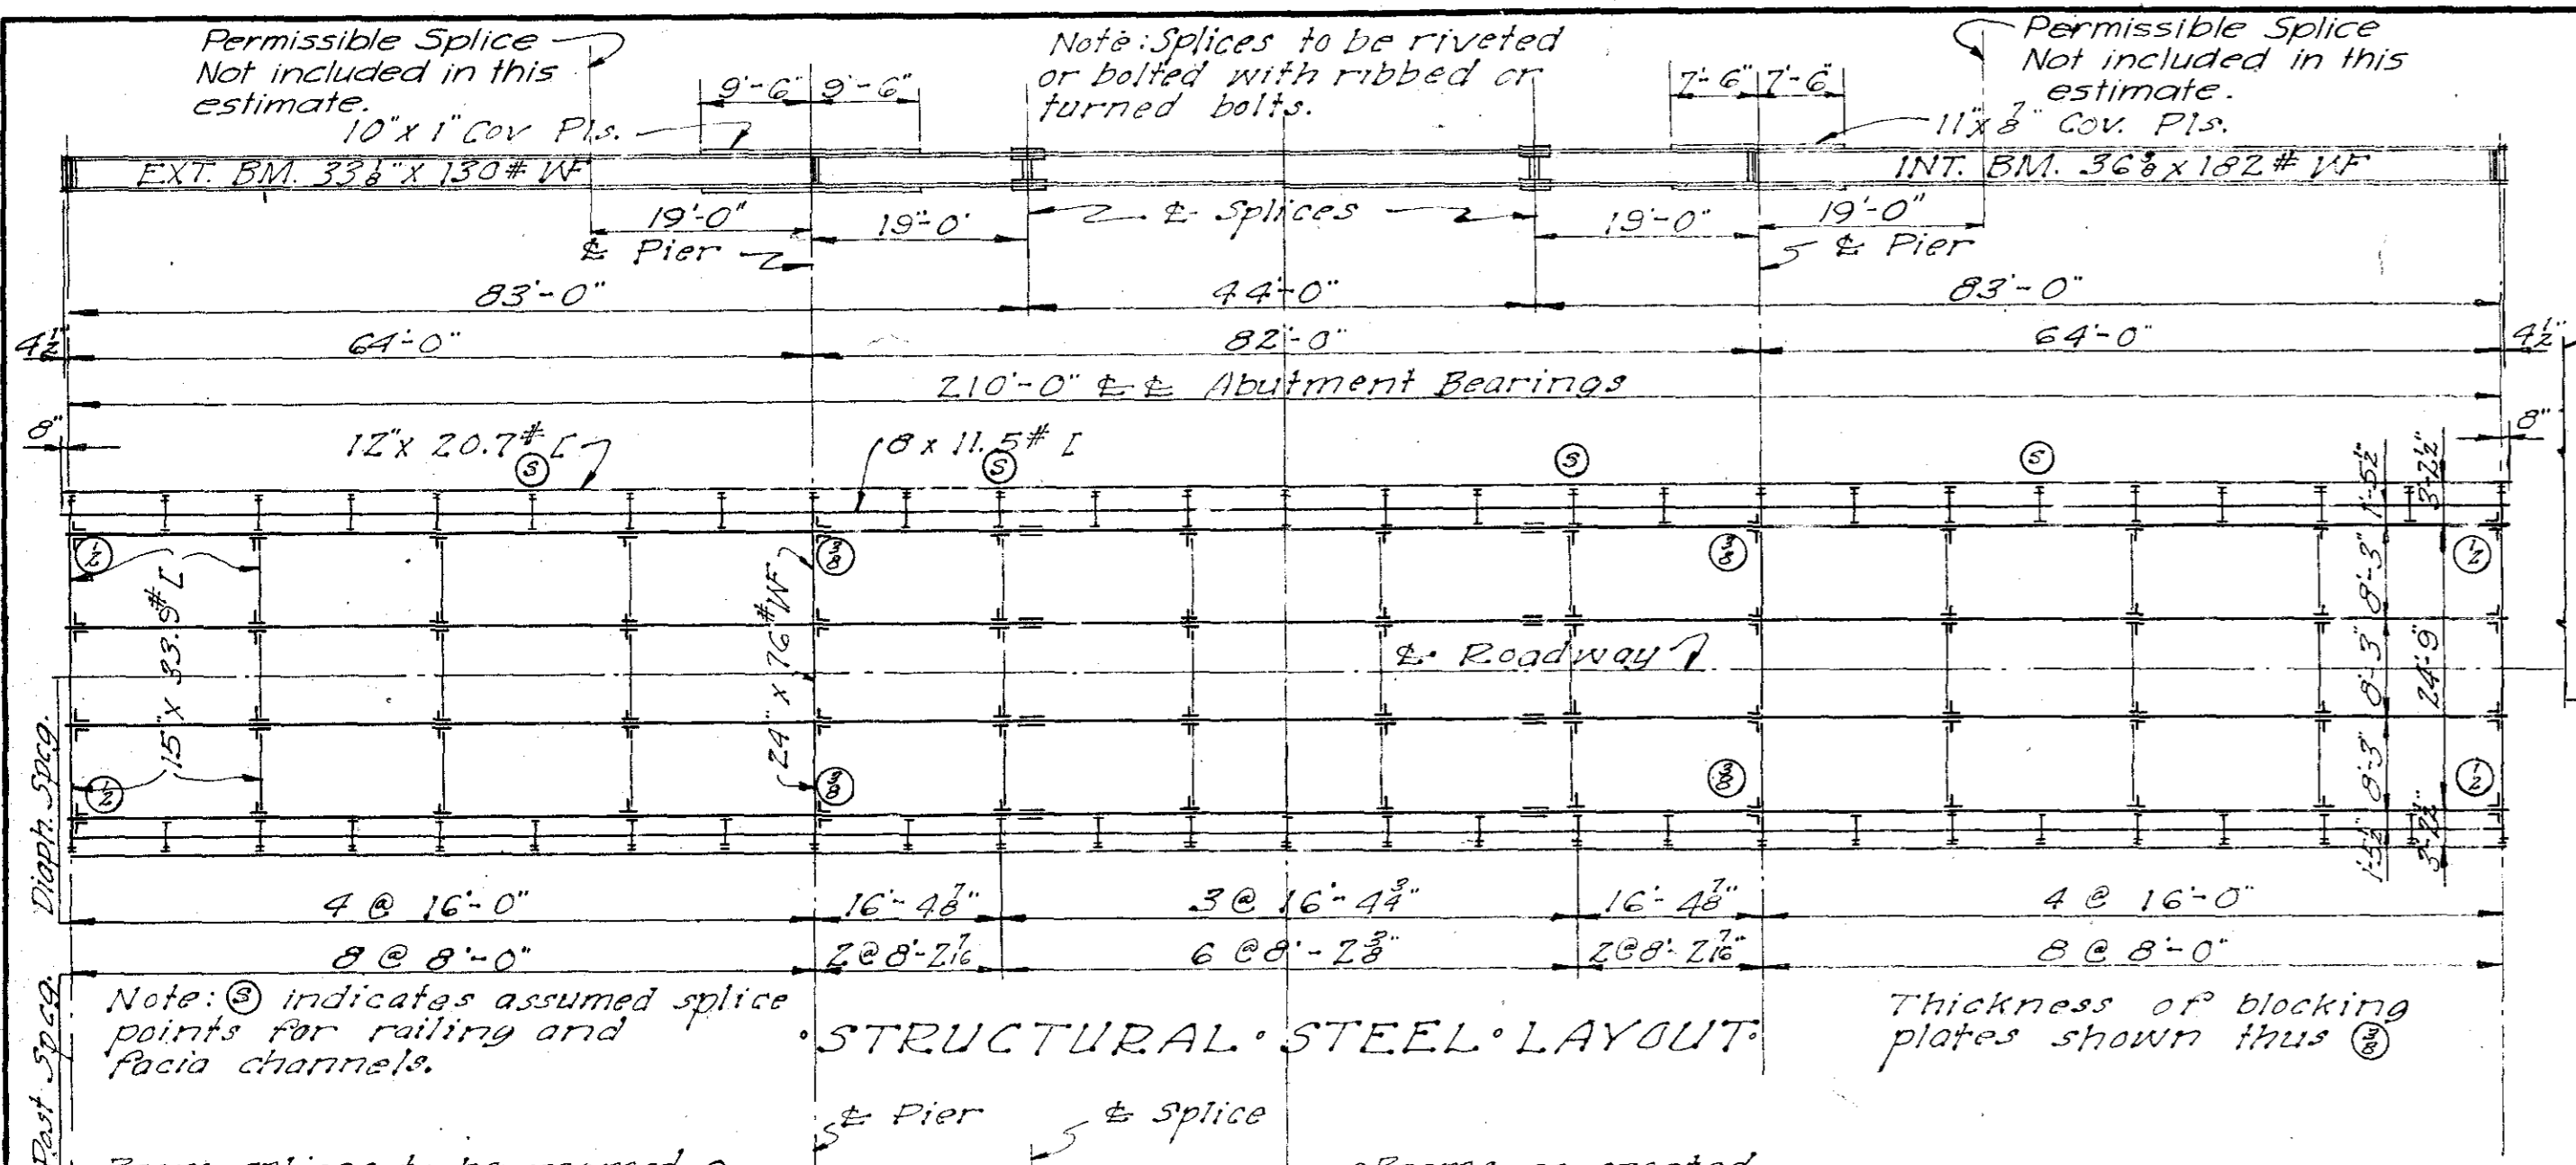 Permissible Splice
Not included in this
estimate.
Note: Splices to be riveted
or bolted with ribbed or
turned bolts.
Permissible Splice
Not included in this
estimate.
9'-6" 9'-6"
7'-6" 7'-6"
10" x 1" Cov Pls.
11" x 7/8" Cov. Pls.
EXT. BM. 33 1/8" x 130# WF
INT. BM. 36 3/8 x 182# WF
19'-0"
19"-0'
℄ Splices
19'-0"
19'-0"
℄ Pier
℄ Pier
83'-0"
44'-0"
83'-0"
4 1/2"
64'-0"
82'-0"
64'-0"
4 1/2"
210'-0" ℄ ℄ Abutment Bearings
8"
12" x 20.7# [
8 x 11.5# [
8"
S
S
S
S
1'-5 1/2"
3'-2 1/2"
1/2
3/8
3/8
1/2
8'-3"
15" x 33.9# [
24" x 76# WF
℄ Roadway
8'-3"
24'-9"
1/2
3/8
3/8
1/2
8'-3"
1'-5 1/2"
3'-2 1/2"
Diaph. Spcg.
4 @ 16'-0"
16'-4 7/8"
3 @ 16'-4 3/4"
16'-4 7/8"
4 @ 16'-0"
Post Spcg.
8 @ 8'-0"
2 @ 8'-2 7/16
6 @ 8'-2 3/8"
2 @ 8'-2 7/16"
8 @ 8'-0"
Note: S indicates assumed splice
points for railing and
facia channels.
·STRUCTURAL·STEEL·LAYOUT·
Thickness of blocking
plates shown thus 3/8
℄ Pier
℄ Splice